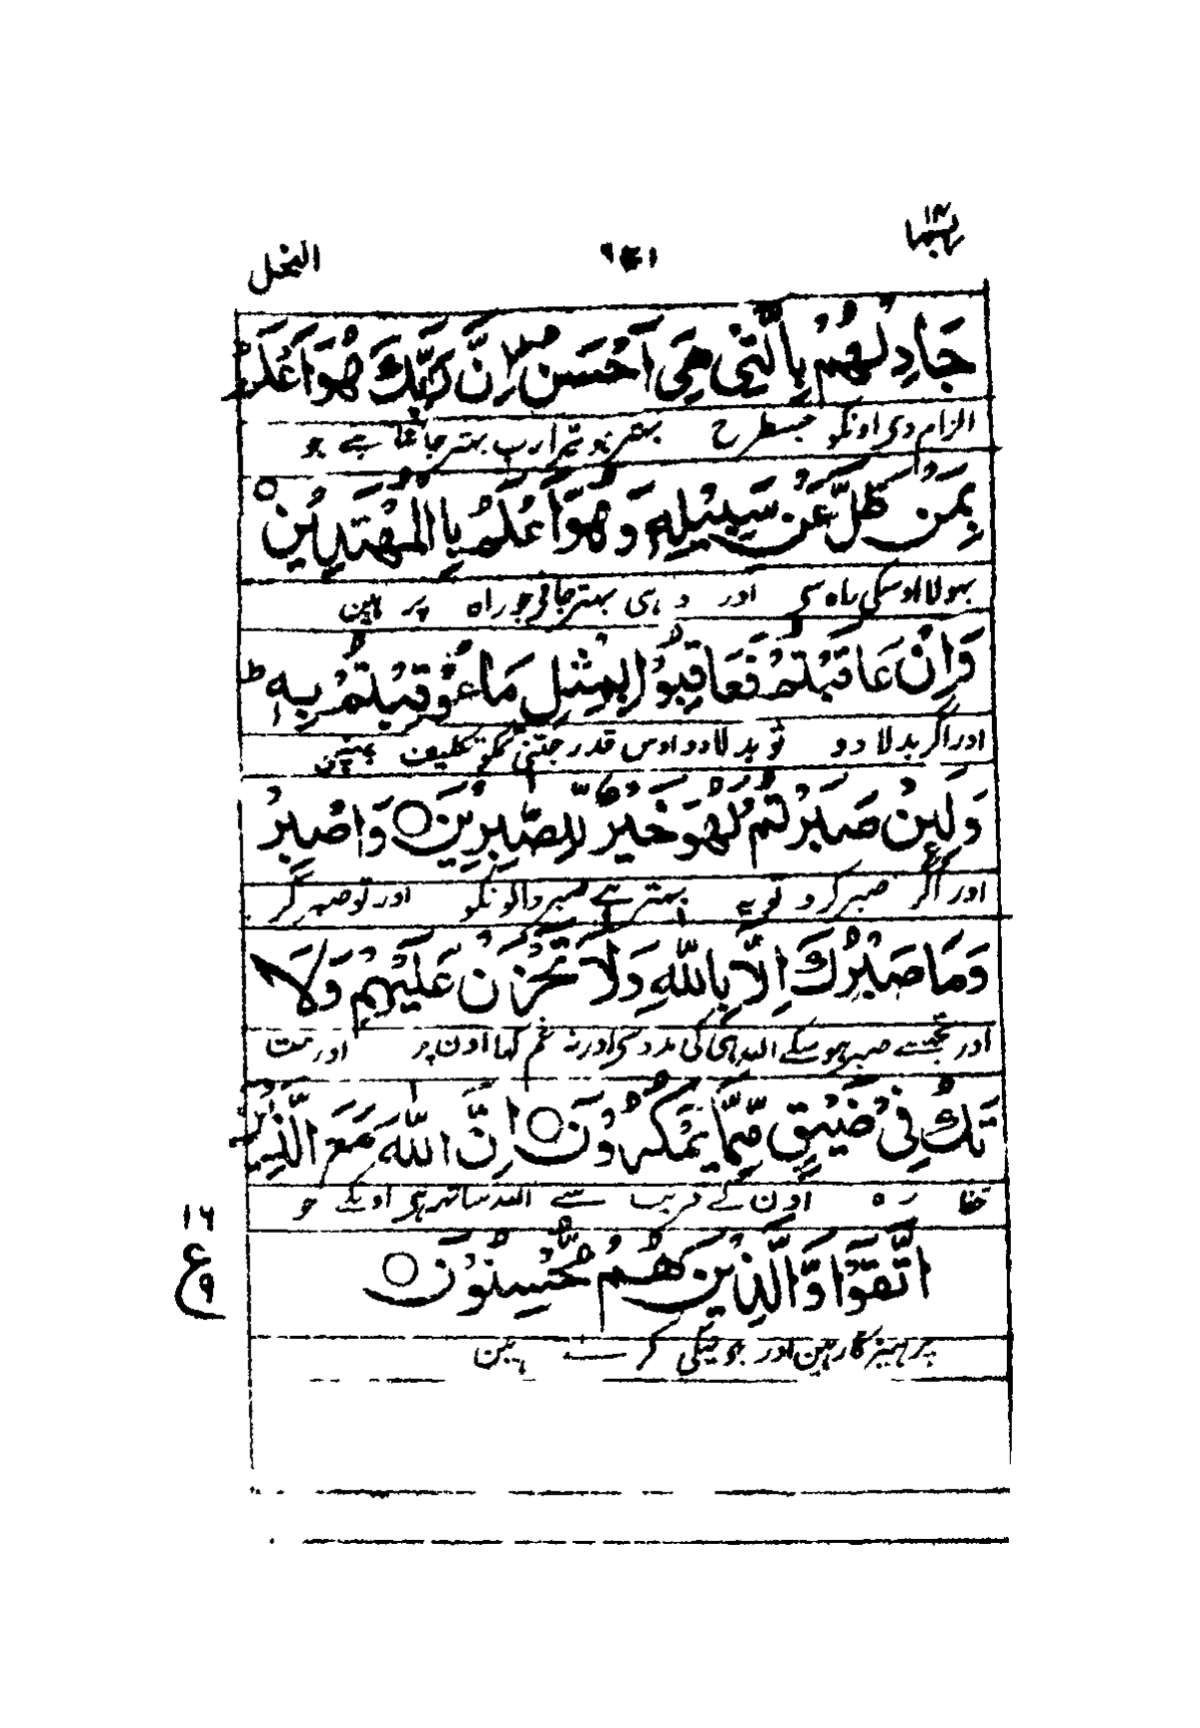 ربما ۱۴
النحل
جَادِلْهُمْ بِالَّتِيْ هِيَ اَحْسَنُ اِنَّ رَبَّكَ هُوَ اَعْلَمُ
الزام دی اونکو جسطرح بہتر ہو تیرا رب بہتر جانتا ہے جو
بِمَنْ ضَلَّ عَنْ سَبِيْلِهٖ وَهُوَ اَعْلَمُ بِالْمُهْتَدِيْنَ ○
بہولا اوسکی راہ سی اور وہی بہتر جانی جو راہ پر ہین
وَاِنْ عَاقَبْتُمْ فَعَاقِبُوْا بِمِثْلِ مَا عُوْقِبْتُمْ بِهٖ ط
اور اگر بدلا دو تو بدلا دو اوس قدر جتنی تمکو تکلیف پہنچی
وَلَىِٕنْ صَبَرْتُمْ لَهُوَ خَيْرٌ لِّلصّٰبِرِيْنَ ○ وَاصْبِرْ
اور اگر صبر کرو تو یہ بہتر ہے صبر والونکو اور تو صبر کر
وَمَا صَبْرُكَ اِلَّا بِاللّٰهِ وَلَا تَحْزَنْ عَلَيْهِمْ وَلَا
اور تجھسے صبر ہو سکے اللہ ہی کی مدد سی اور نہ غم کھا اون پر اور مت
تَكُ فِيْ ضَيْقٍ مِّمَّا يَمْكُرُوْنَ ○ اِنَّ اللّٰهَ مَعَ الَّذِيْنَ
خفا رہ اون کے فریب سے اللہ ساتھ ہی اونکے جو
اتَّقَوْا وَّالَّذِيْنَ هُمْ مُّحْسِنُوْنَ ○
پرہیزگار ہین اور جو نیکی کرتے ہین
۱۶
ع
۹